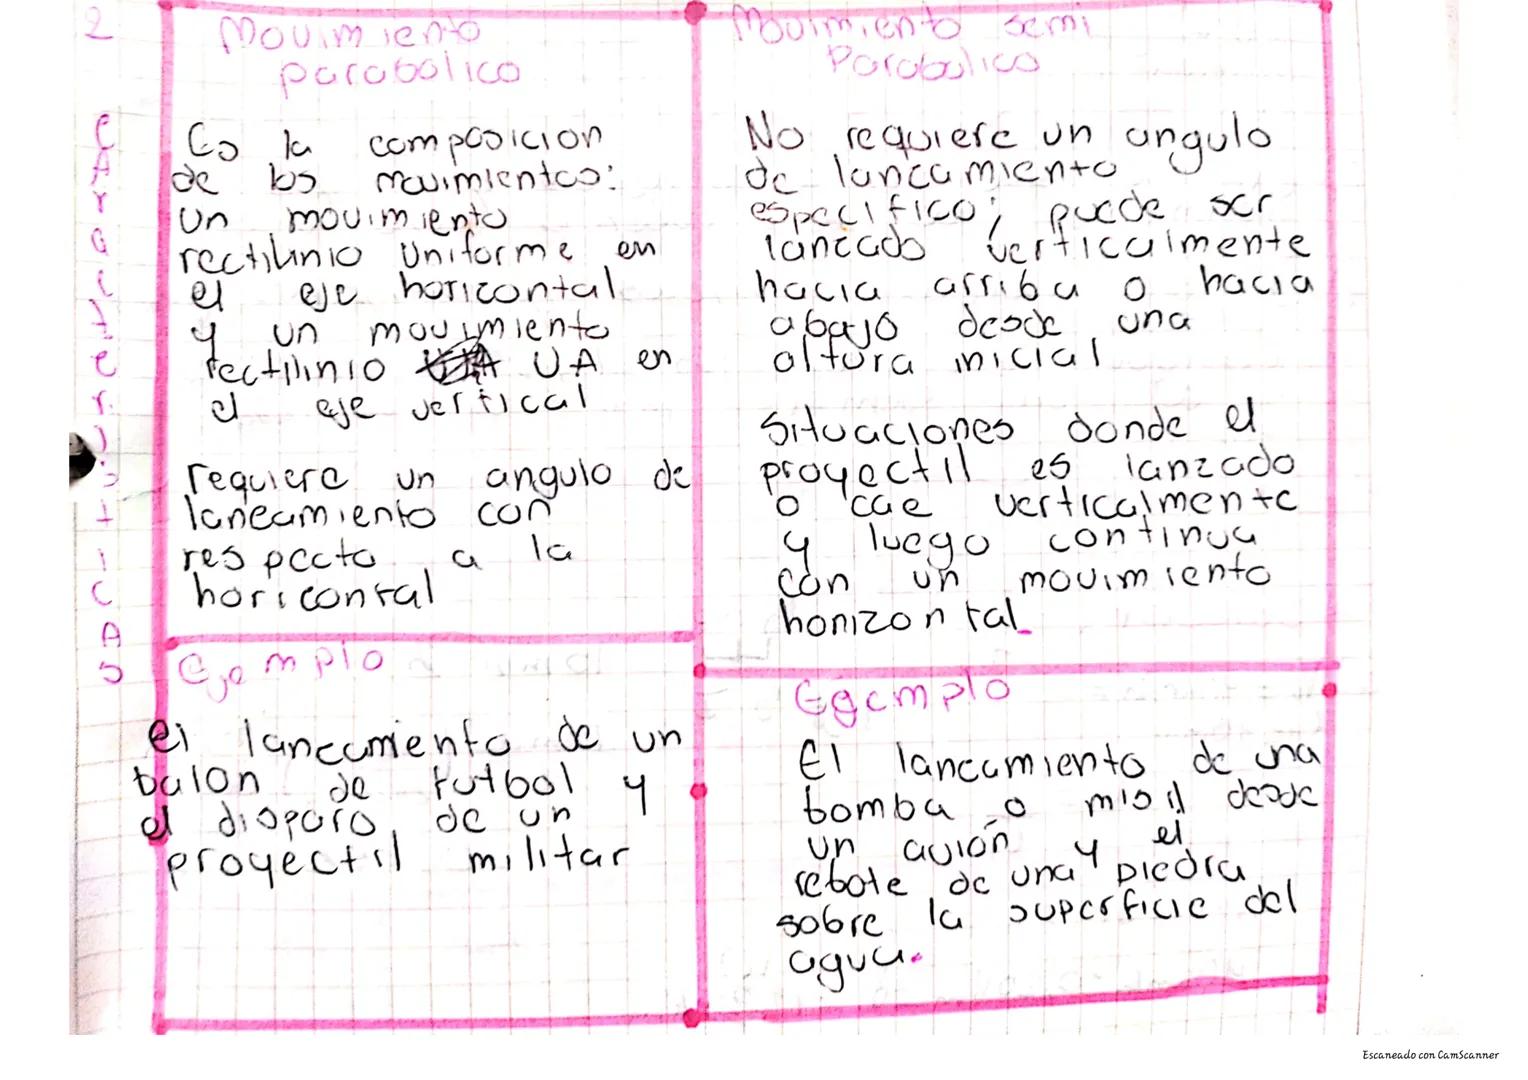 2
CAracteristicas
Movimiento
parabolico
Es la composicion
de los movimientos:
un movimiento
rectilinio Uniforme en
el eje horizontal
y un movimiento
rectilinio UA en
el eje vertical
requiere un angulo de
lancamiento con
respecto a la
horicontal
Ejemplo
el lancamiento de un
balon de futbol y
el disparo, de un
proyectil militar
Movimiento semi
Parabolico
No requiere un angulo
de lancamiento
especifico; puede ser
lancado verticalmente
hacia arriba o hacia
abajo desde una
altura inicial
Situaciones donde el
proyectil es lanzado
o cae verticalmente
y luego continua
con un movimiento
horizontal
Egemplo
El lancamiento de una
bomba o misil desde
un avión y el
rebote de una piedra
sobre la superficie del
agua.
Escaneado con CamScanner